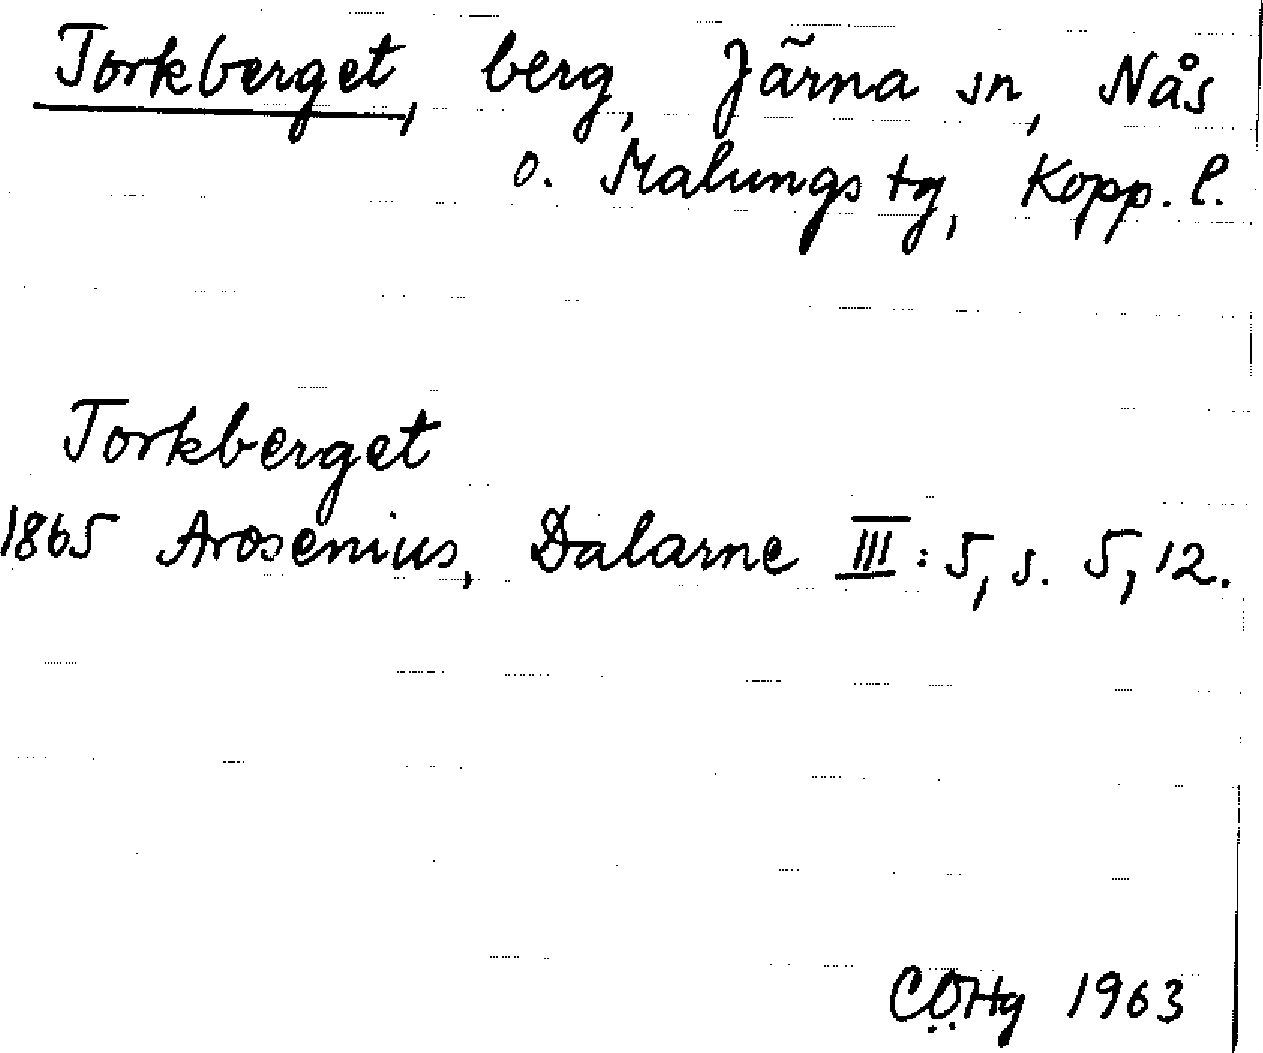 Torkberget, berg, Järna sn, Nås
o. Malungs tg, Kopp. l.
Torkberget
1865 Arosenius, Dalarne III:5, s. 5, 12.
CÖHg 1963